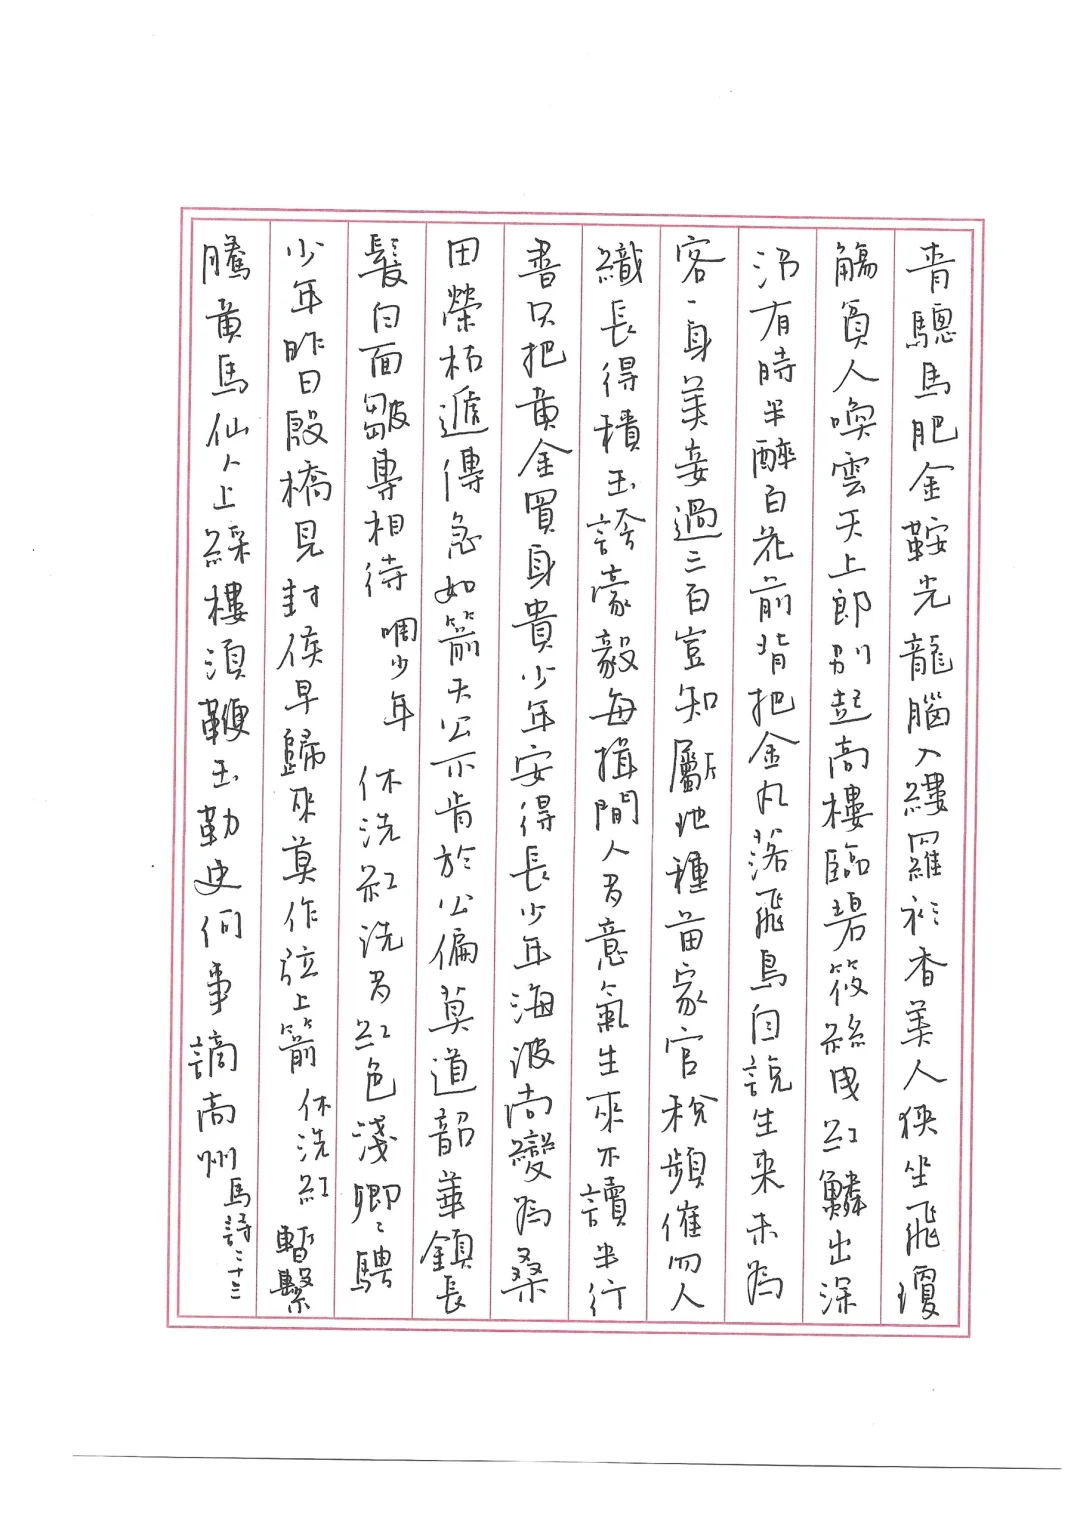 青驄馬肥金鞍光龍腦入縷羅衫香美人狹坐飛瓊
觴貧人喚雲天上郎別起高樓臨碧筱絲曳紅鱗出深
沼有時半醉百花前背把金丸落飛鳥自說生来未為
客一身美妾過三百豈知斸地種苗家官税頻催勿人
織長得積玉誇豪毅每揖閒人多意氣生來不讀半行
書只把黄金買身貴少年安得長少年海波尚變為桑
田榮枯遞傳急如箭天公不肯於公偏莫道韶華鎮長
髮白面皺專相待 啁少年 休洗紅洗多紅色淺卿〻騁
少年昨日殷橋見封侯早歸來莫作弦上箭 休洗紅 暫繫
騰黄馬仙人上綵樓須鞭玉勒吏何事謫高州 馬詩二十三